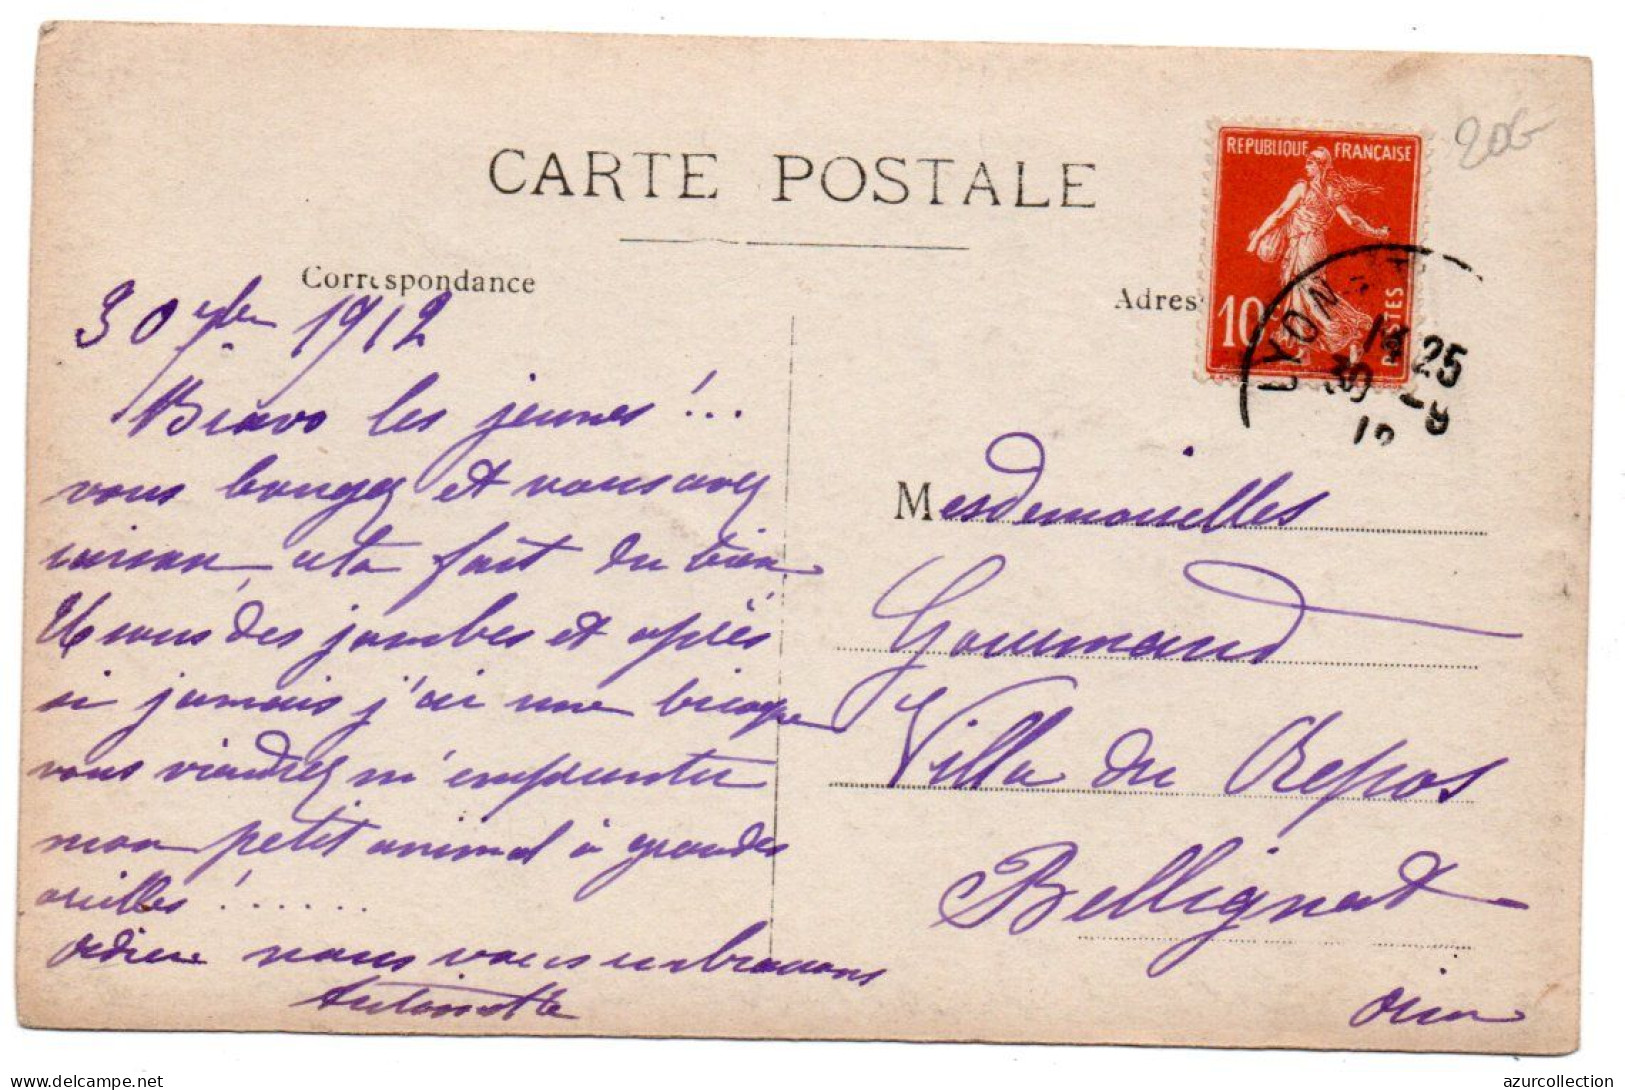 CARTE POSTALE
Correspondance
Adres
RÉPUBLIQUE FRANÇAISE
10c
POSTES
LYON
25
30
30 7bre 1912
Bravo les jeunes !...
vous bougez et vous avez
raison, cela fait du bien
aux jambes et après
si jamais j'ai une bicoque
vous viendrez m'emprunter
mon petit animal à grandes
oreilles !......
Adieu nous vous embrassons
Antoinette
Mesdemoiselles
Gourmand
Villa du Repos
Bellignat
Ain
delcampe.net
azurcollection